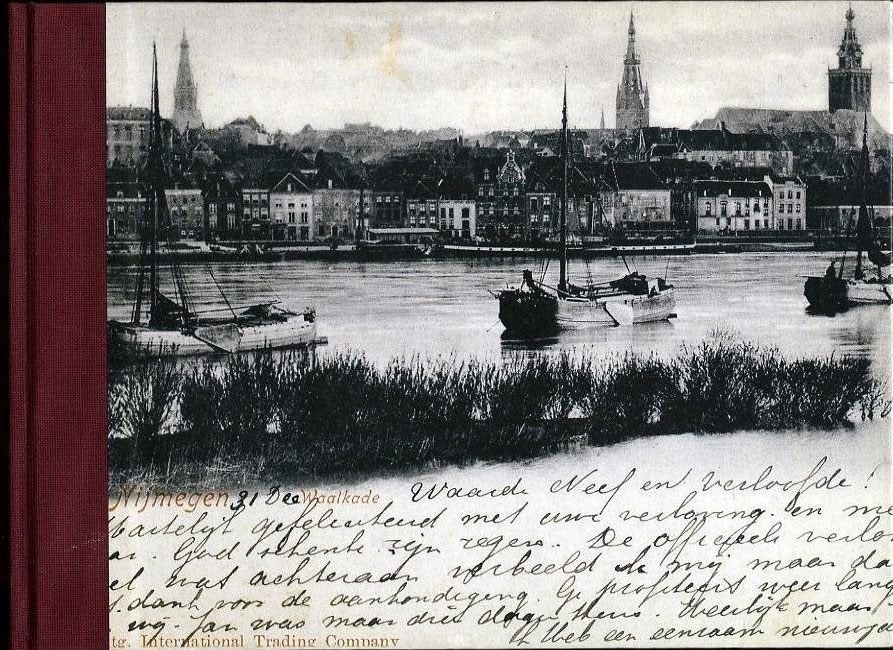 Nijmegen 31 Dec Waalkade Waarde Neef en verloofde!
Hartelijk gefeliciteerd met uwe verloving en me
ar. God schenke zijn zegen. De officieele verlo
el wat achteraan verbeeld ik mij maar da
dank voor de aankondiging. Ge profiteert weer lang
wij. Jan was maar drie dagen thuis. Heerlijk maar
Ik heb een eenzaam nieuwja
tg. International Trading Company